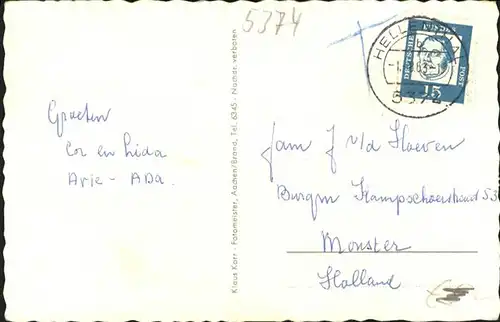 5374
HELLENTHAL
5374
DEUTSCHE BUNDESPOST
15
Groeten
Cor en Lida
Arie - ADA.
Klaus Karr · Fotomeister, Aachen/Brand, Tel. 6345 · Nachdr. verboten
Fam J v/d Hoeven
Burgm Kampschoerstraat 53
Monster
Holland